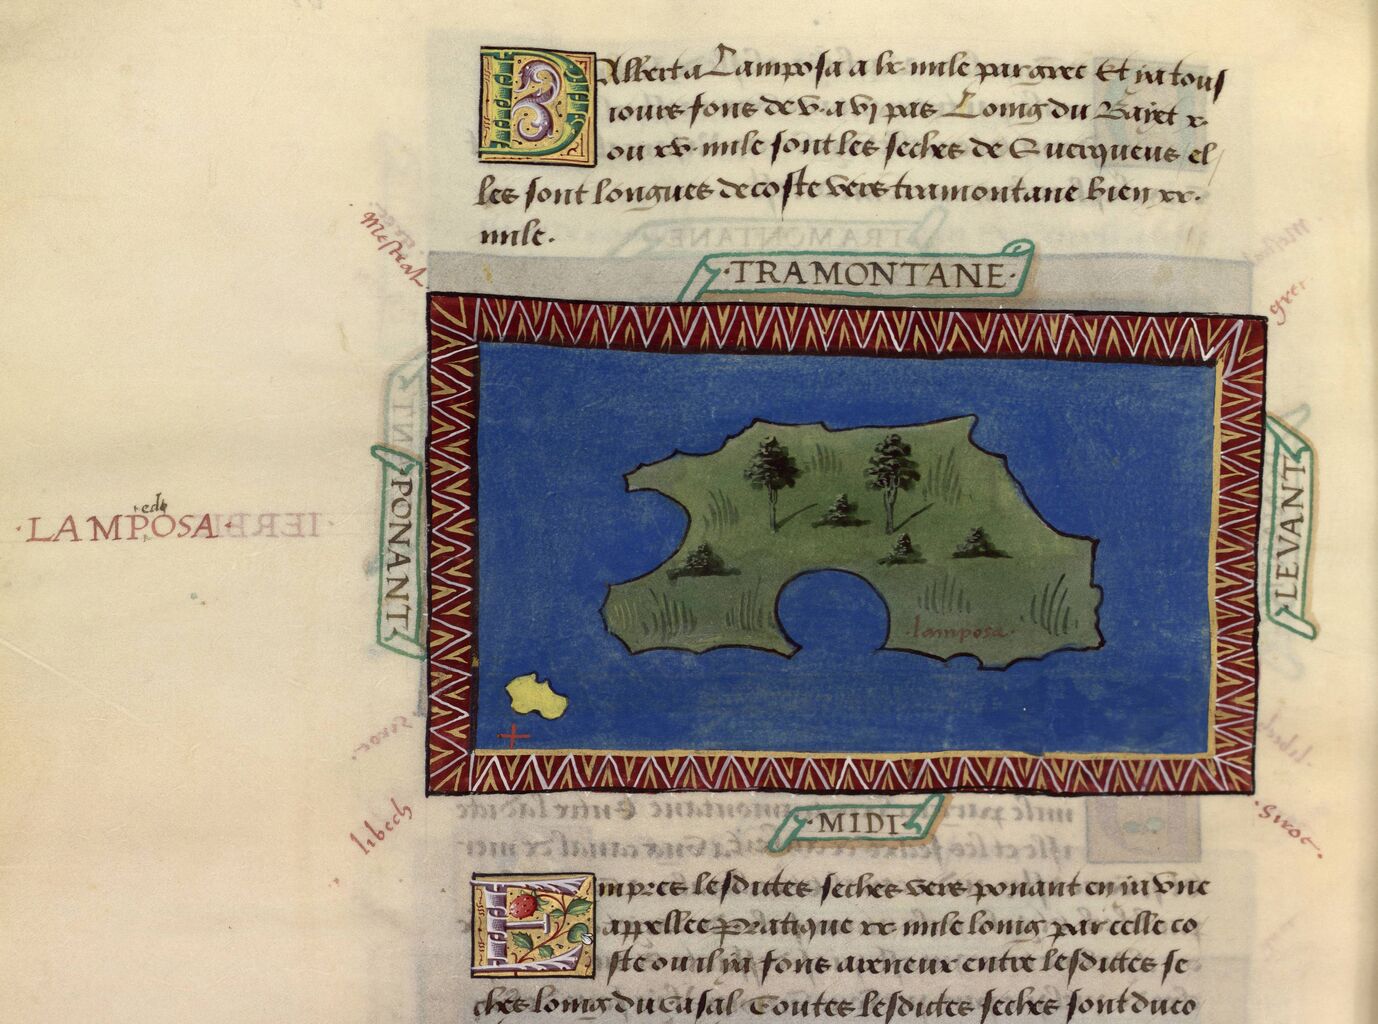 D Alberta Lamposa a lx mile par grec Et ya tous
iours fons de v a vi pas Loing du Bayet x
ou xv mile sont les seches de el
les sont longues de coste vers tramontane bien xx
mile
mestral
·TRAMONTANE·
grec
·LAMPOSA·
PONANT
LEVANT
·lamposa·
libech
·MIDI·
·siroc·
Empres lesdictes seches vers ponant en ya vne
appellee Pratique xx mile loing par celle co
ste ou il ya fons areneux entre lesdictes se
ches loing du Casal Toutes lesdictes seches sont du co